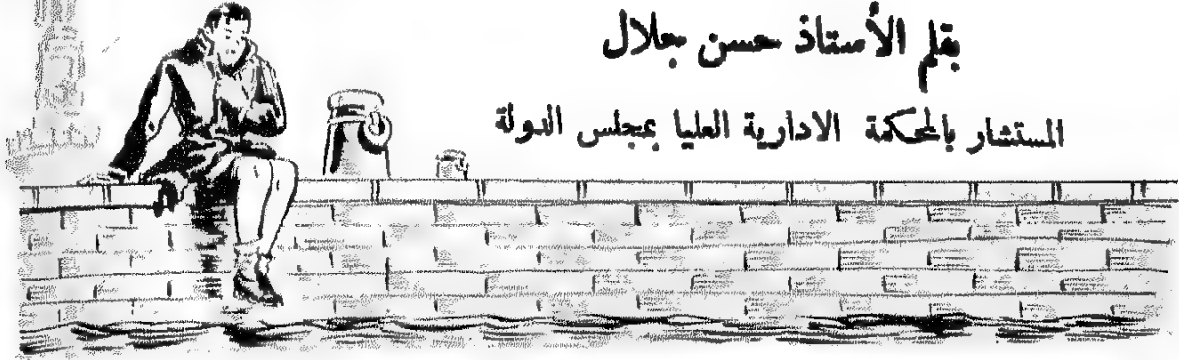 بقلم الأستاذ حسن جلال
المستشار بالمحكمة الادارية العليا بمجلس الدولة